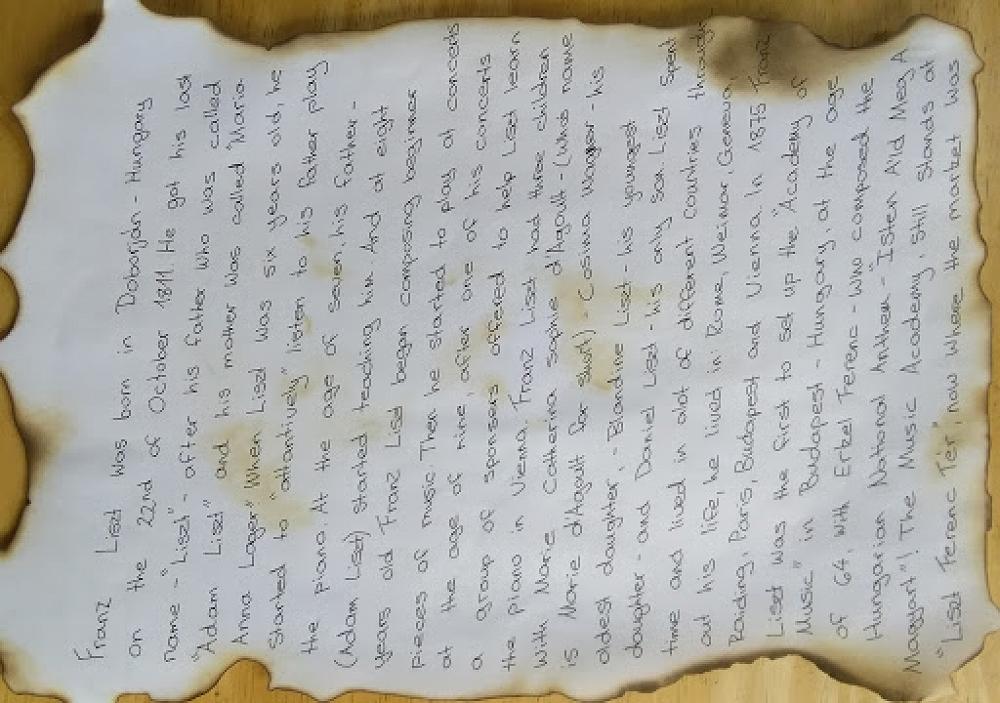 Franz Liszt was born in Doborján - Hungary
on the 22nd of October 1811. He got his last
name -"Liszt"- after his father who was called
"Adam Liszt" and his mother was called "Maria
Anna Lager" When Liszt was six years old, he
started to "attantively" listen to his father play
the piano. At the age of seven, his father -
(Adam Liszt) started teaching him. And at eight
years old Franz Liszt began composing beginner
pieces of music. Then he started to play at concerts
at the age of nine, after one of his concerts
a group of sponsers offered to help Liszt learn
the piano in Vienna. Franz Liszt had three children
With Marie Catherina sophie d'Agault - (Whos name
is Marie d'Agault for short) - Cosima Wagner - his
oldest daughter, - Blandine Liszt - his youngest
daughter - and Daniel Liszt - his only Son. Liszt Spent
time and lived in alot of different countries through-
out his life, he lived in Rome, Weimar, Genewa,
Raiding, Paris, Budapest and Vienna. In 1875 Franz
Liszt was the first to set up the "Academy of
Music" in Budapest - Hungary, at the age
of 64, with Erkel Ferenc - Who composed the
Hungarian National Anthem - "Isten Áld Meg A
Magyart"! The Music Academy, still Stands at
"Liszt Ferenc Tér", now where the market was